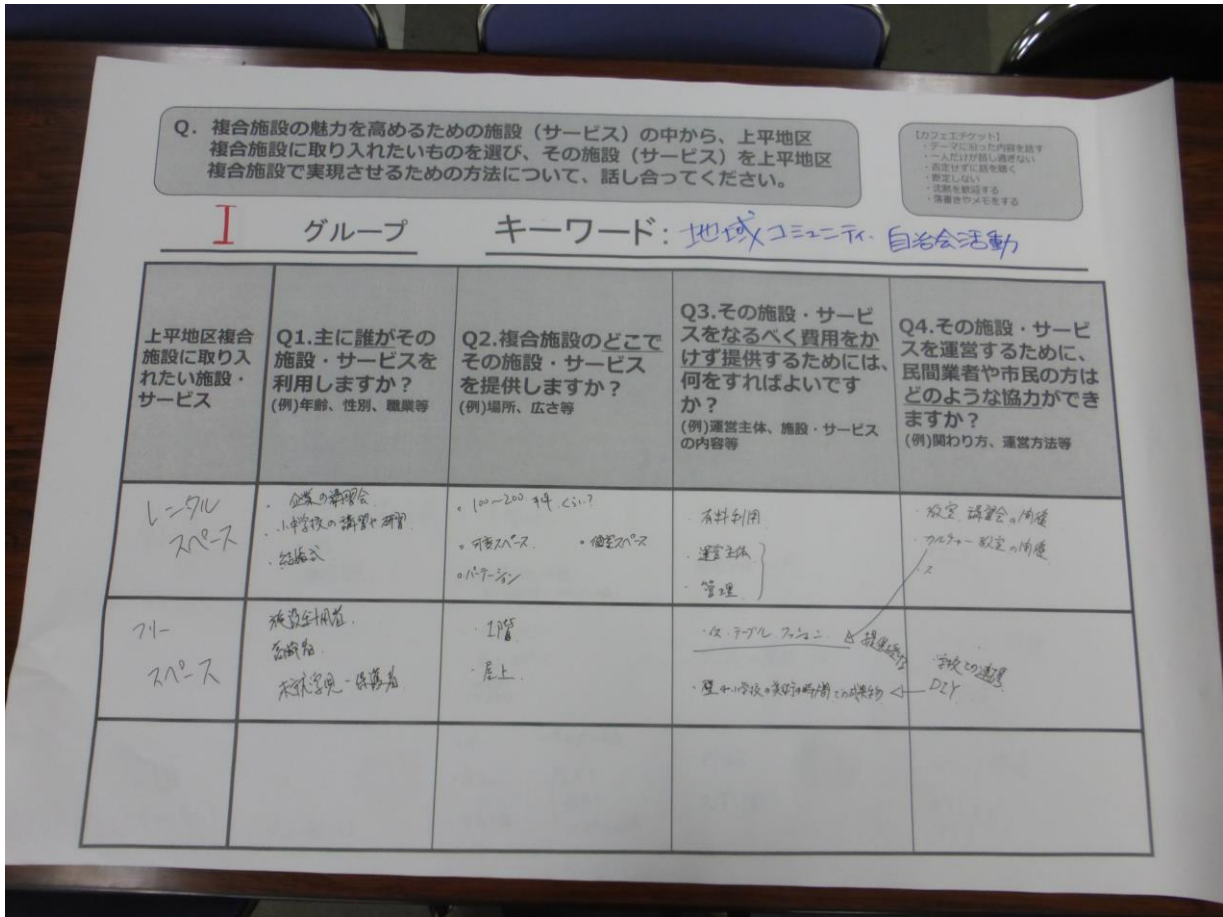 Q. 複合施設の魅力を高めるための施設（サービス）の中から、上平地区
複合施設に取り入れたいものを選び、その施設（サービス）を上平地区
複合施設で実現させるための方法について、話し合ってください。
【カフェエチケット】
・テーマに沿った内容を話す
・一人だけが話し過ぎない
・否定せずに話を聴く
・断定しない
・沈黙を歓迎する
・落書きやメモをする
I グループ キーワード：地域コミュニティ・自治会活動
上平地区複合
施設に取り入
れたい施設・
サービス
Q1.主に誰がその
施設・サービスを
利用しますか？
(例)年齢、性別、職業等
Q2.複合施設のどこで
その施設・サービス
を提供しますか？
(例)場所、広さ等
Q3.その施設・サービ
スをなるべく費用をか
けず提供するためには、
何をすればよいです
か？
(例)運営主体、施設・サービス
の内容等
Q4.その施設・サービ
スを運営するために、
民間業者や市民の方は
どのような協力ができ
ますか？
(例)関わり方、運営方法等
レンタル
スペース
・企業の講習会
・小中学校の講習や研習
・結婚式
・100〜200 くらい？
・可変スペース ・個室スペース
・パーテーション
・有料利用
・運営主体
・管理
・教室 講習会の開催
・カルチャー教室の開催
フリー
スペース
施設利用者
高齢者
未就学児・保護者
・1階
・屋上
・イス・テーブル クッション
・壁 小学校の の時間での成果物
・学校との連携
DIY